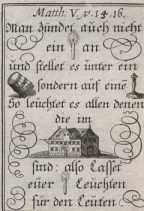 Matth. V. v. 14. 16.
Man Zündet auch nicht
ein an
und stellet es unter ein
sondern auf eine
So leuchtet es allen denen
die im
sind: also Lasset
euer Leuchten
für den Leuten.